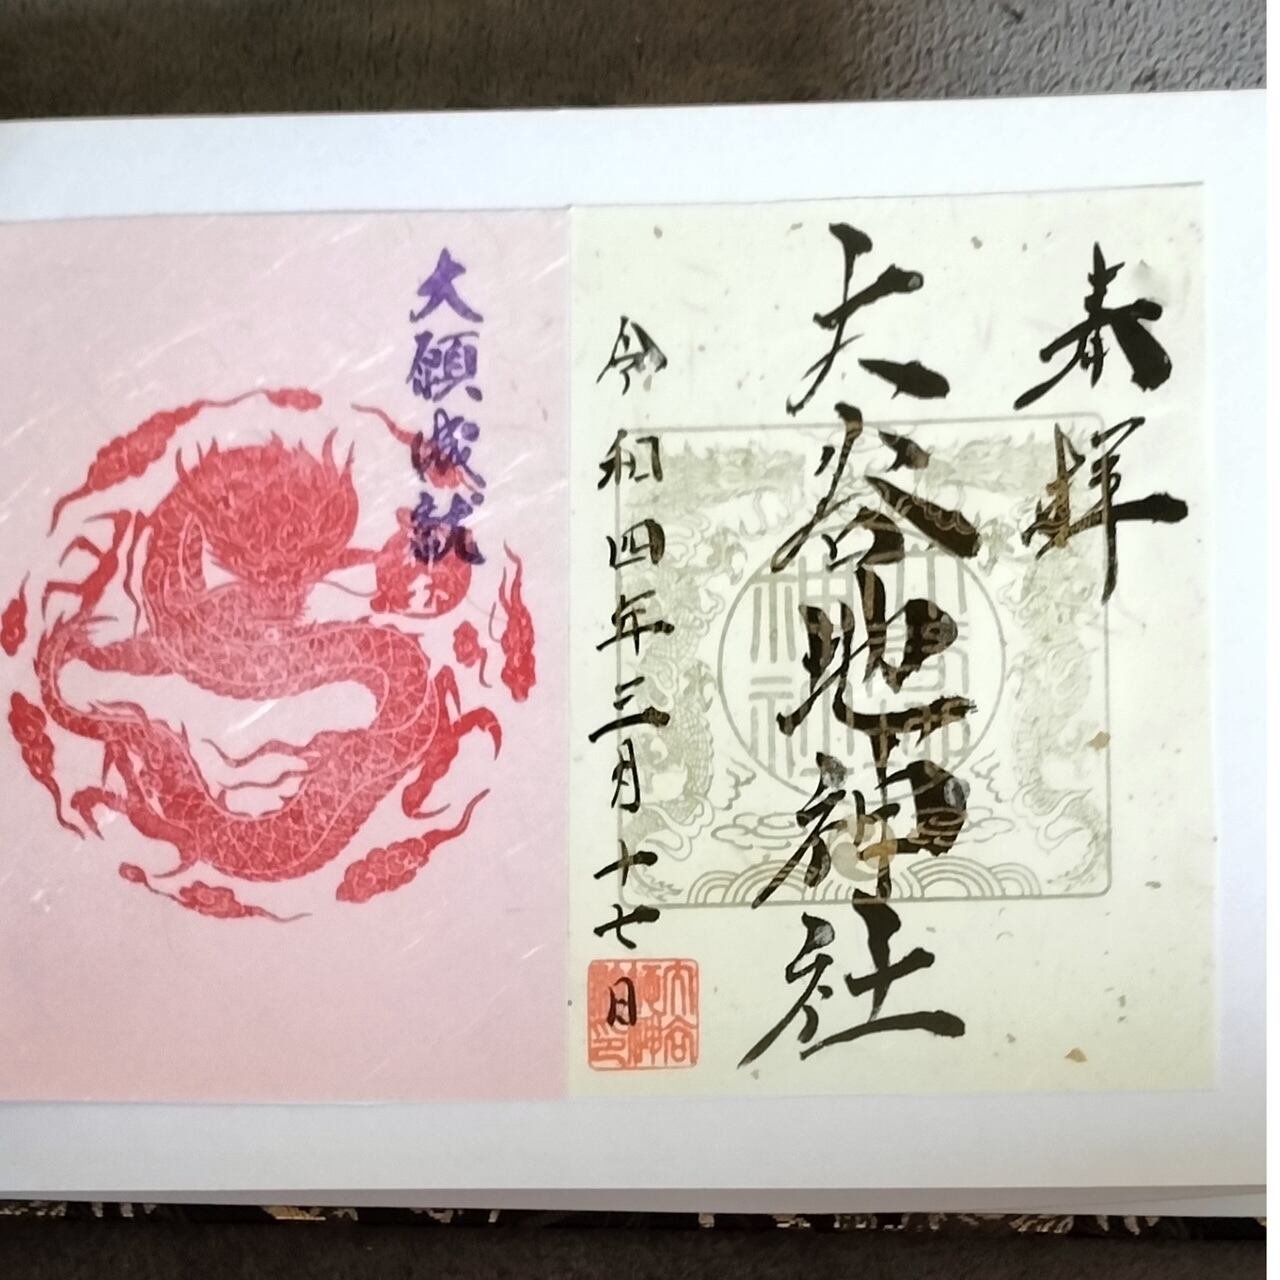 奉拝
大谷地神社
令和四年三月十七日
大願成就
玉